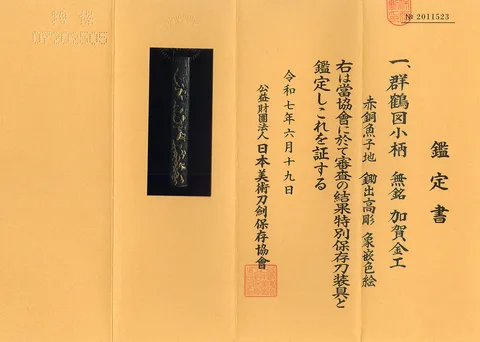 鑑定書
一、群鶴図小柄 無銘 加賀金工
赤銅魚子地 鋤出高彫 象嵌色絵
右は當協會に於て審査の結果特別保存刀装具と
鑑定しこれを証する
令和七年六月十九日
公益財團法人 日本美術刀劍保存協會
№ 2011523